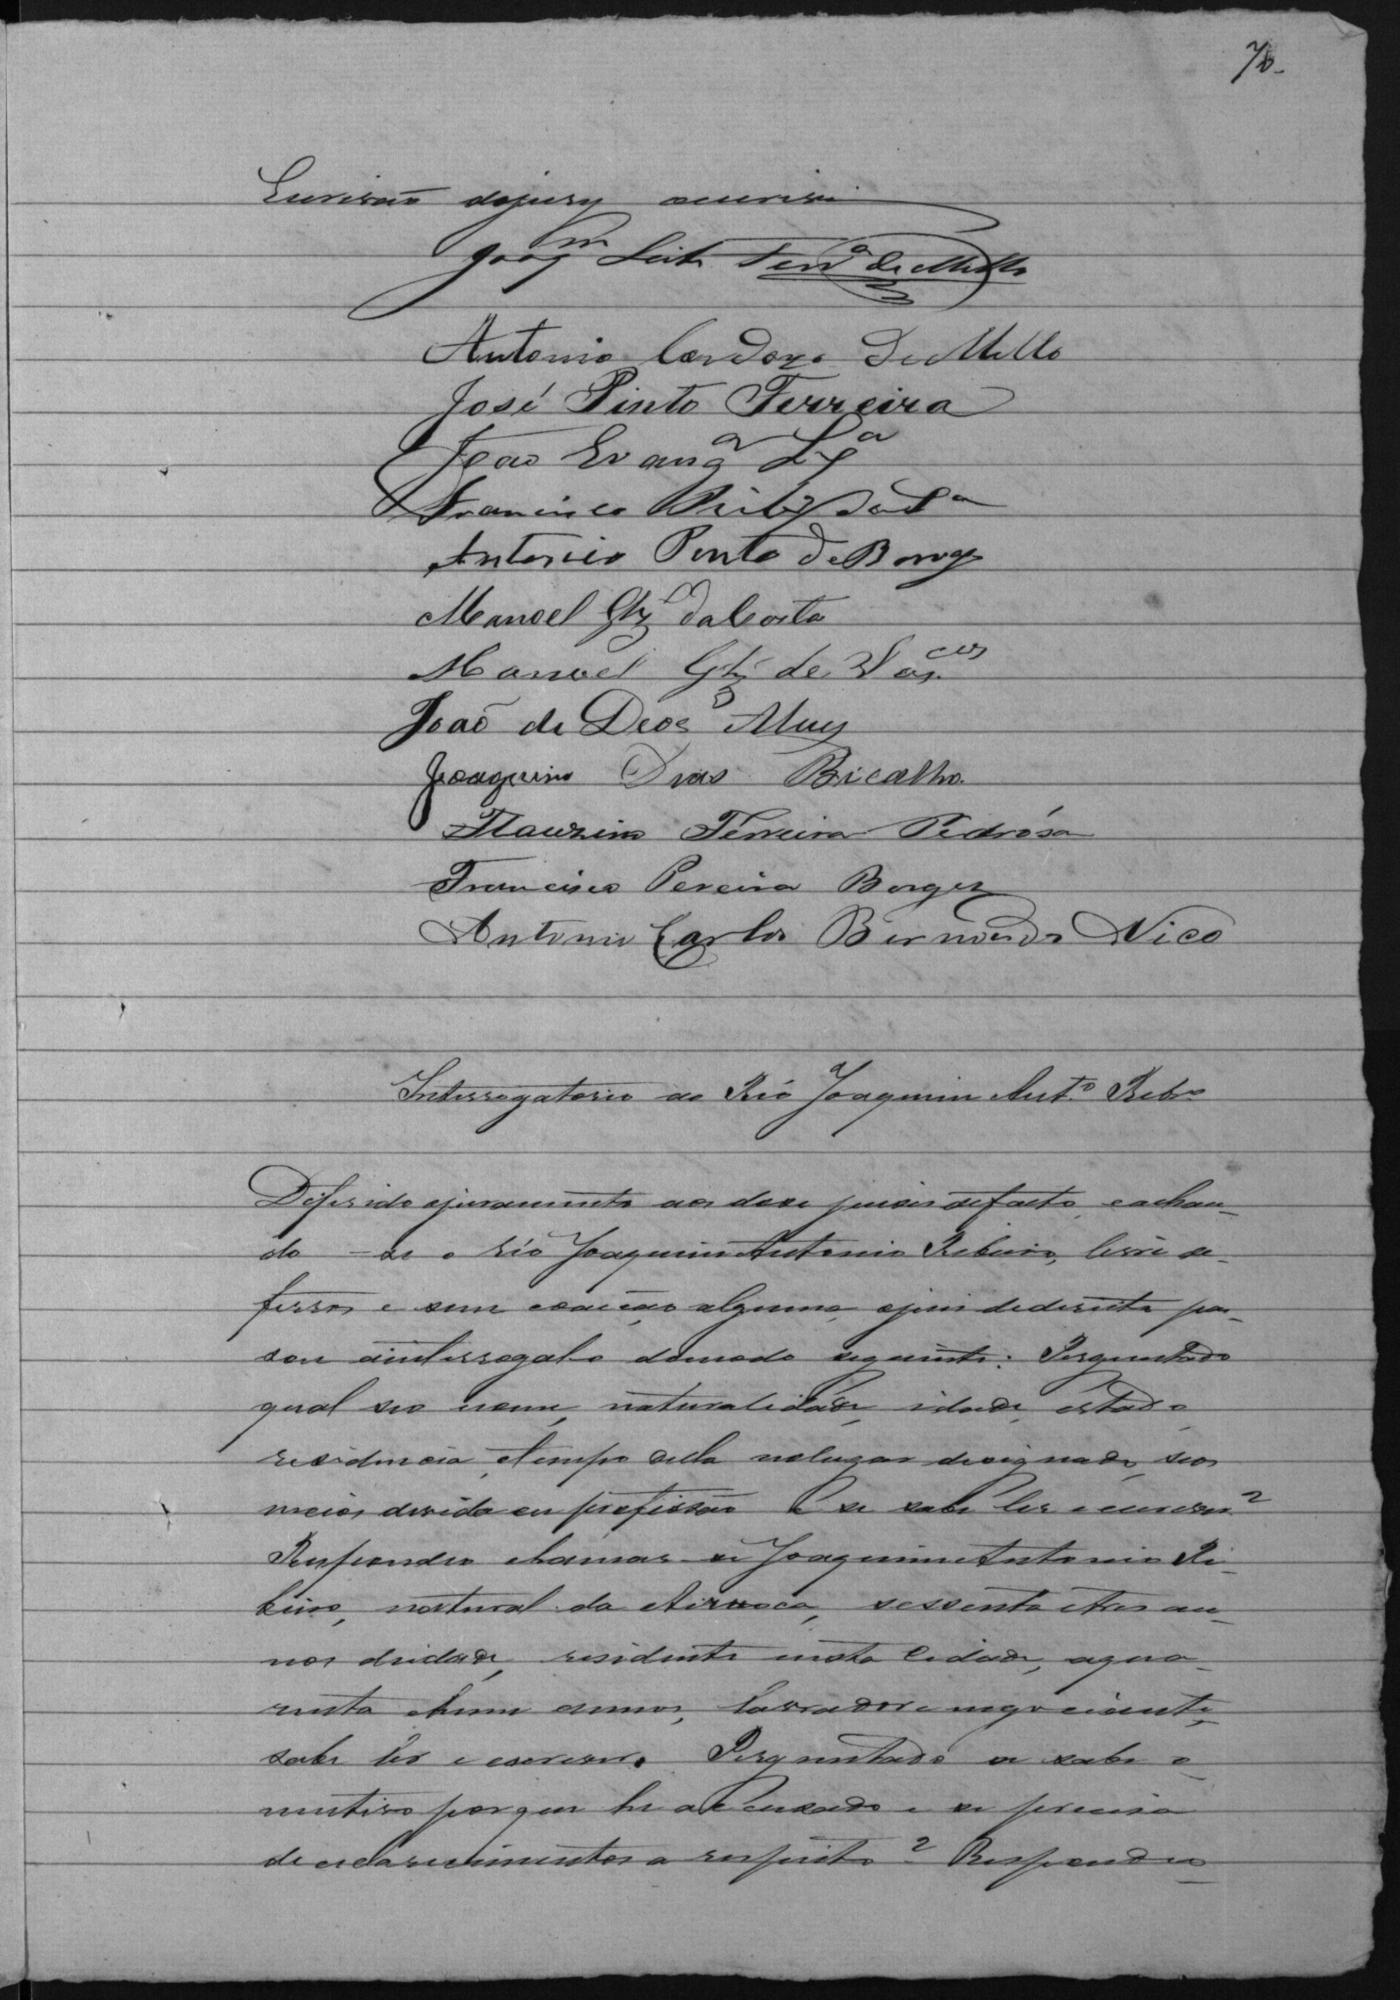 76.
Escrivão do jury escrevi
Joaqm Leite Ferra de Mello
Antonio Cardozo De Mello
José Pinto Ferreira
João Evangª
Francisco
Antonio Pinto de Borges
Manoel Glz da Costa
Manoel Glz de Vasccos
João de Deos
Joaquim Dias Bicalho
Flauzino Ferreira Pedrósa
Francisco Pereira Borges
Antonio Carlos Bernardo Nico
Interrogatorio ao Réo Joaquim Antº Rebro
Deferido o juramento aos doze juizes de facto, e achan-
do-se o réo Joaquim Antonio Ribeiro, livre de
ferros e sem coacção alguma, o juiz de direito pas-
sou a interrogal-o do modo seguinte: Perguntado
qual seo nome, naturalidade, idade, estado,
residencia, e tempo della no lugar designado, seos
meios de vida ou profissão e se sabe ler e escrever?
Respondeo chamar-se Joaquim Antonio Ri-
beiro, natural da Airuoca, sessenta e tres an-
nos de idade, residente nesta Cidade, a qua-
renta e hum annos, lavrador e negociante,
sabe ler e escrever. Perguntado se sabe o
motivo porque he accuzado e se precisa
de esclarecimentos a respeito? Respondeo